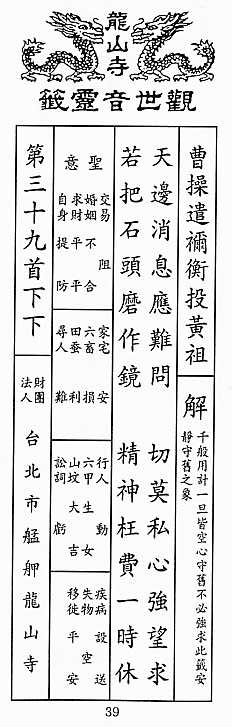 龍山寺
觀世音靈籤
曹操遣禰衡投黃祖
解
千般用計一旦皆空心守舊不必強求此籤安
靜守舊之象
天邊消息應難問 切莫私心強望求
若把石頭磨作鏡 精神枉費一時休
聖意
交易 阻
婚姻 不合
求財 平平
自身 提防
家宅 安
六畜 損
田蚕 利
尋人 難
行人 動
六甲 生女
山坟 大吉
訟詞 虧
疾病 設送
失物 空
移徙 平安
第三十九首下下
財團
法人
台北市艋舺龍山寺
39